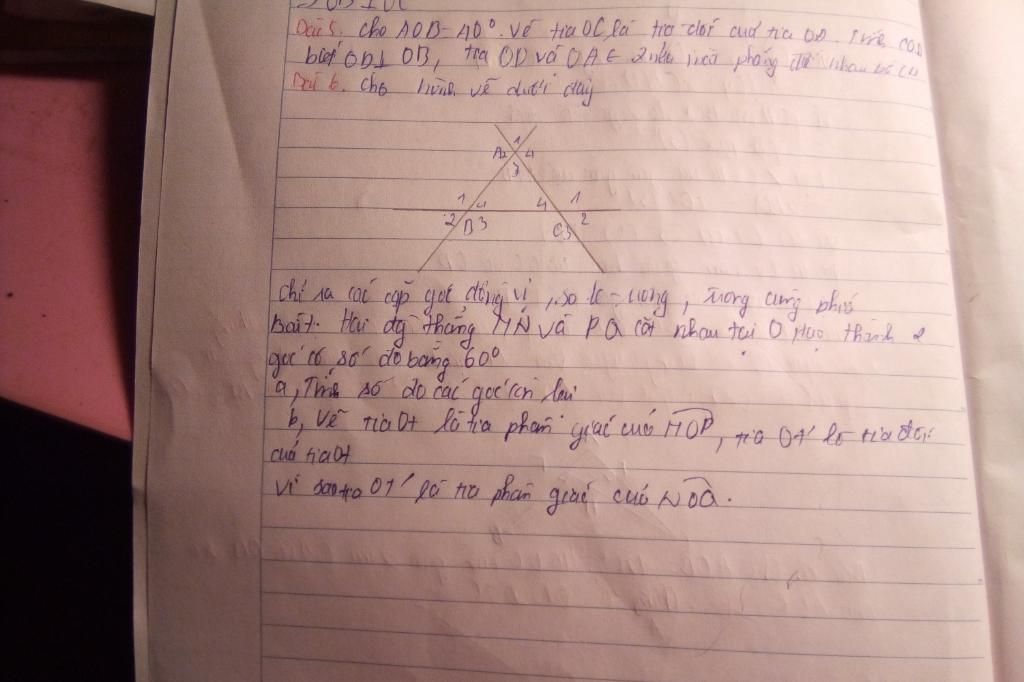 Bài 5. Cho AOB = 40°. Vẽ tia OC là tia đối của tia OA. Tính COD
biết OD⊥ OB, tia OD và OA ∈ 2 nửa mặt phẳng đối nhau bờ
Bài 6. Cho hình vẽ dưới đây
1
A2 4
3
1 4 4 1
2 B 3 C3 2
Chỉ ra các cặp góc đồng vị, so le trong, trong cùng phía
Bài 7. Hai đg thẳng MN và PQ cắt nhau tại O tạo thành 2
góc có số đo bằng 60°
a, Tính số đo các góc còn lại
b, Vẽ tia Ot là tia phân giác của MOP, tia Ot' là tia đối
của tia Ot
Vì sao tia Ot' là tia phân giác của NOQ.